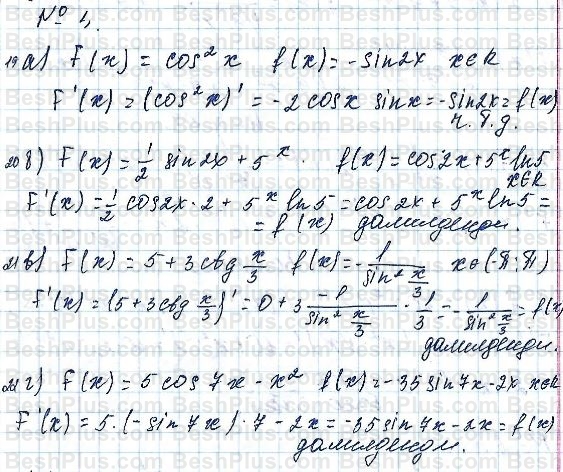 № 1.
19 а) F(x) = cos²x f(x) = -sin2x x∈R
F'(x) = (cos²x)' = -2cosx sinx = -sin2x = f(x)
ч. т. д.
20 б) F(x) = 1/2 sin2x + 5ˣ. f(x) = cos2x + 5ˣ ln5
x∈R
F'(x) = 1/2 cos2x·2 + 5ˣ ln5 = cos2x + 5ˣ ln5 =
= f(x) далилденди.
21 в) F(x) = 5 + 3ctg x/3 f(x) = -1/sin² x/3 x∈(-π; π)
F'(x) = (5 + 3ctg x/3)' = 0 + 3 -1/sin² x/3 · 1/3 = -1/sin² x/3 = f(x)
далилденди.
22 г) F(x) = 5cos7x - x² f(x) = -35sin7x - 2x x∈R
F'(x) = 5·(-sin7x)·7 - 2x = -35sin7x - 2x = f(x)
далилденди.